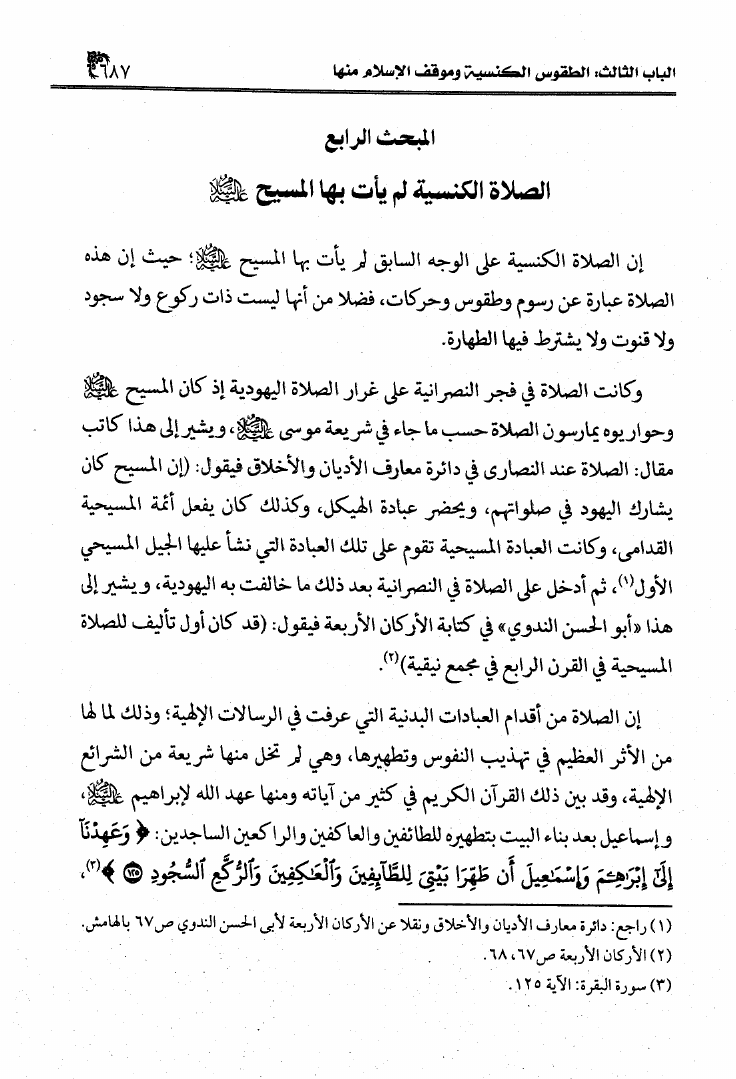 الباب الثالث: الطقوس الكنسية وموقف الإسلام منها
٦٨٧
المبحث الرابع
الصلاة الكنسية لم يأت بها المسيح عليه السلام
إن الصلاة الكنسية على الوجه السابق لم يأت بها المسيح عليه السلام؛ حيث إن هذه
الصلاة عبارة عن رسوم وطقوس وحركات، فضلا من أنها ليست ذات ركوع ولا سجود
ولا قنوت ولا يشترط فيها الطهارة.
وكانت الصلاة في فجر النصرانية على غرار الصلاة اليهودية إذ كان المسيح عليه السلام
وحواريوه يمارسون الصلاة حسب ما جاء في شريعة موسى عليه السلام، ويشير إلى هذا كاتب
مقال: الصلاة عند النصارى في دائرة معارف الأديان والأخلاق فيقول: (إن المسيح كان
يشارك اليهود في صلواتهم، ويحضر عبادة الهيكل، وكذلك كان يفعل أئمة المسيحية
القدامى، وكانت العبادة المسيحية تقوم على تلك العبادة التي نشأ عليها الجيل المسيحي
الأول(١)، ثم أدخل على الصلاة في النصرانية بعد ذلك ما خالفت به اليهودية، ويشير إلى
هذا «أبو الحسن الندوي» في كتابة الأركان الأربعة فيقول: (قد كان أول تأليف للصلاة
المسيحية في القرن الرابع في مجمع نيقية)(٢).
إن الصلاة من أقدام العبادات البدنية التي عرفت في الرسالات الإلهية؛ وذلك لما لها
من الأثر العظيم في تهذيب النفوس وتطهيرها، وهي لم تخل منها شريعة من الشرائع
الإلهية، وقد بين ذلك القرآن الكريم في كثير من آياته ومنها عهد الله لإبراهيم عليه السلام،
وإسماعيل بعد بناء البيت بتطهيره للطائفين والعاكفين والراكعين الساجدين: ﴿ وَعَهِدْنَآ
إِلَىٰٓ إِبْرَٰهِـۧمَ وَإِسْمَٰعِيلَ أَن طَهِّرَا بَيْتِيَ لِلطَّآئِفِينَ وَٱلْعَٰكِفِينَ وَٱلرُّكَّعِ ٱلسُّجُودِ ١٢٥ ﴾(٣)،
(١) راجع: دائرة معارف الأديان والأخلاق ونقلا عن الأركان الأربعة لأبى الحسن الندوي ص٦٧ بالهامش.
(٢) الأركان الأربعة ص٦٧، ٦٨.
(٣) سورة البقرة: الآية ١٢٥.